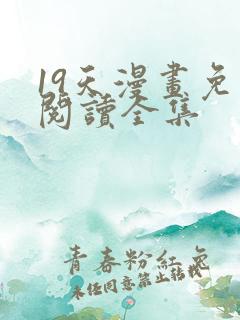 19天漫畫免
閱讀全集
青春粉紅色
未经同意禁止转载